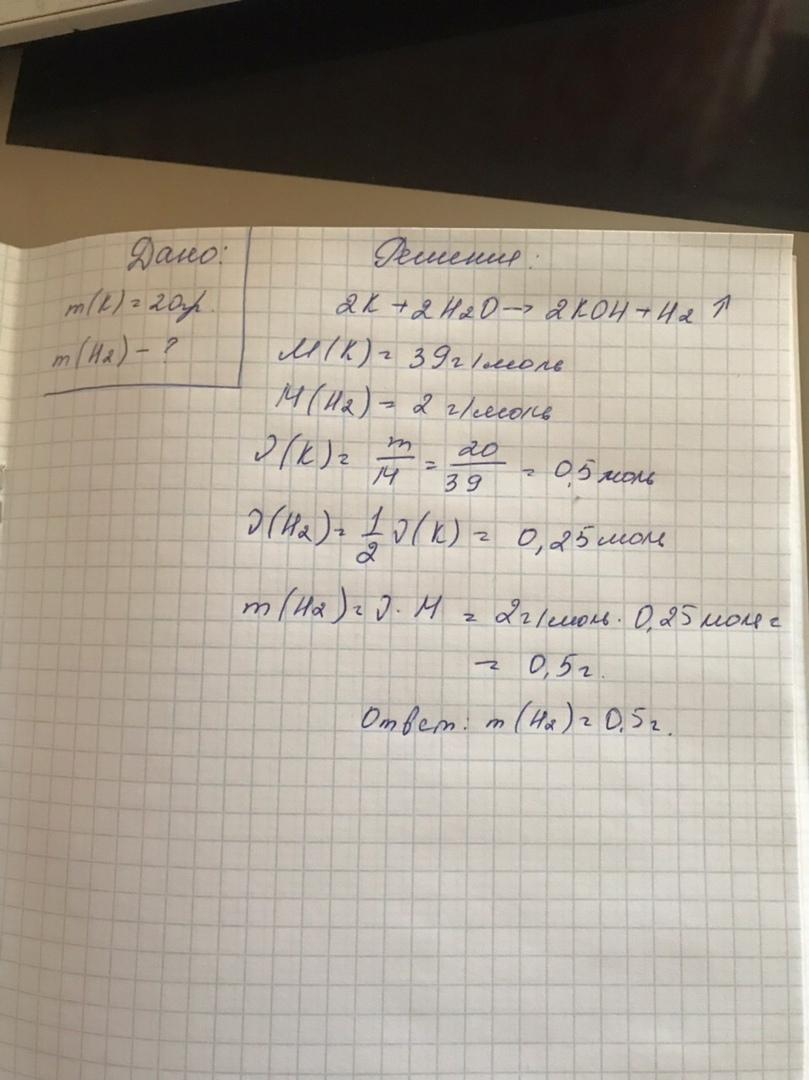 Дано:
m(K) = 20гр.
m(H2) - ?
Решение:
2K + 2H2O → 2KOH + H2 ↑
M(K) = 39 г/моль
M(H2) = 2 г/моль
ν(K) = m/M = 20/39 = 0,5 моль
ν(H2) = 1/2 ν(K) = 0,25 моль
m(H2) = ν · M = 2 г/моль · 0,25 моль =
= 0,5 г.
Ответ: m(H2) = 0,5 г.